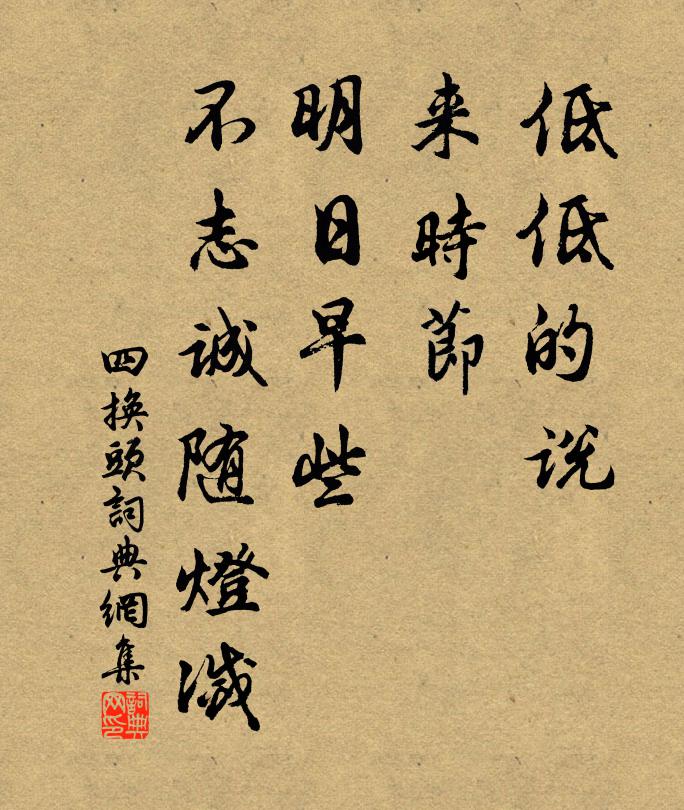 低低的说
来時節
明日早些
不志誠随燈滅
四換頭詞典網集
詞典网印